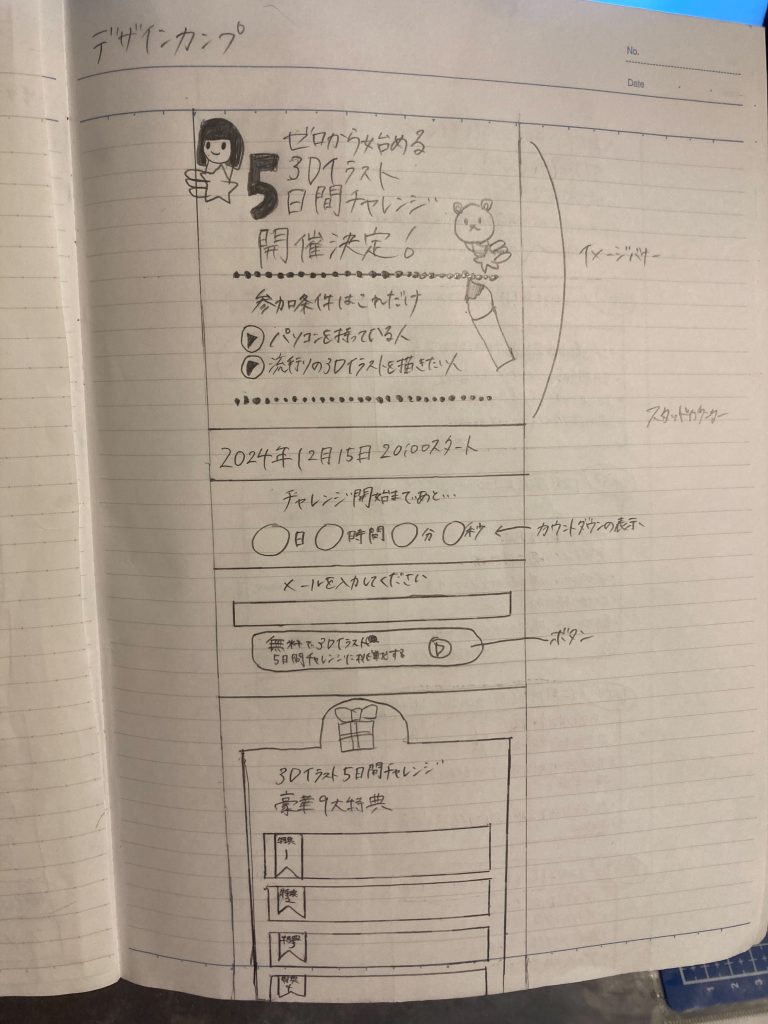 デザインカンプ
No.
Date
ゼロから始める
3Dイラスト
5日間チャレンジ
開催決定!
イメージバナー
参加条件はこれだけ
パソコンを持っている人
流行りの3Dイラストを描きたい人
2024年12月15日 20:00スタート
チャレンジ開始まであと…
日 時間 分 秒
カウントダウンの表示
メールを入力してください
無料で3Dイラスト
5日間チャレンジに挑戦する
ボタン
3Dイラスト5日間チャレンジ
豪華9大特典
特典
1
特典
2
特典
3
特典
1 2 3